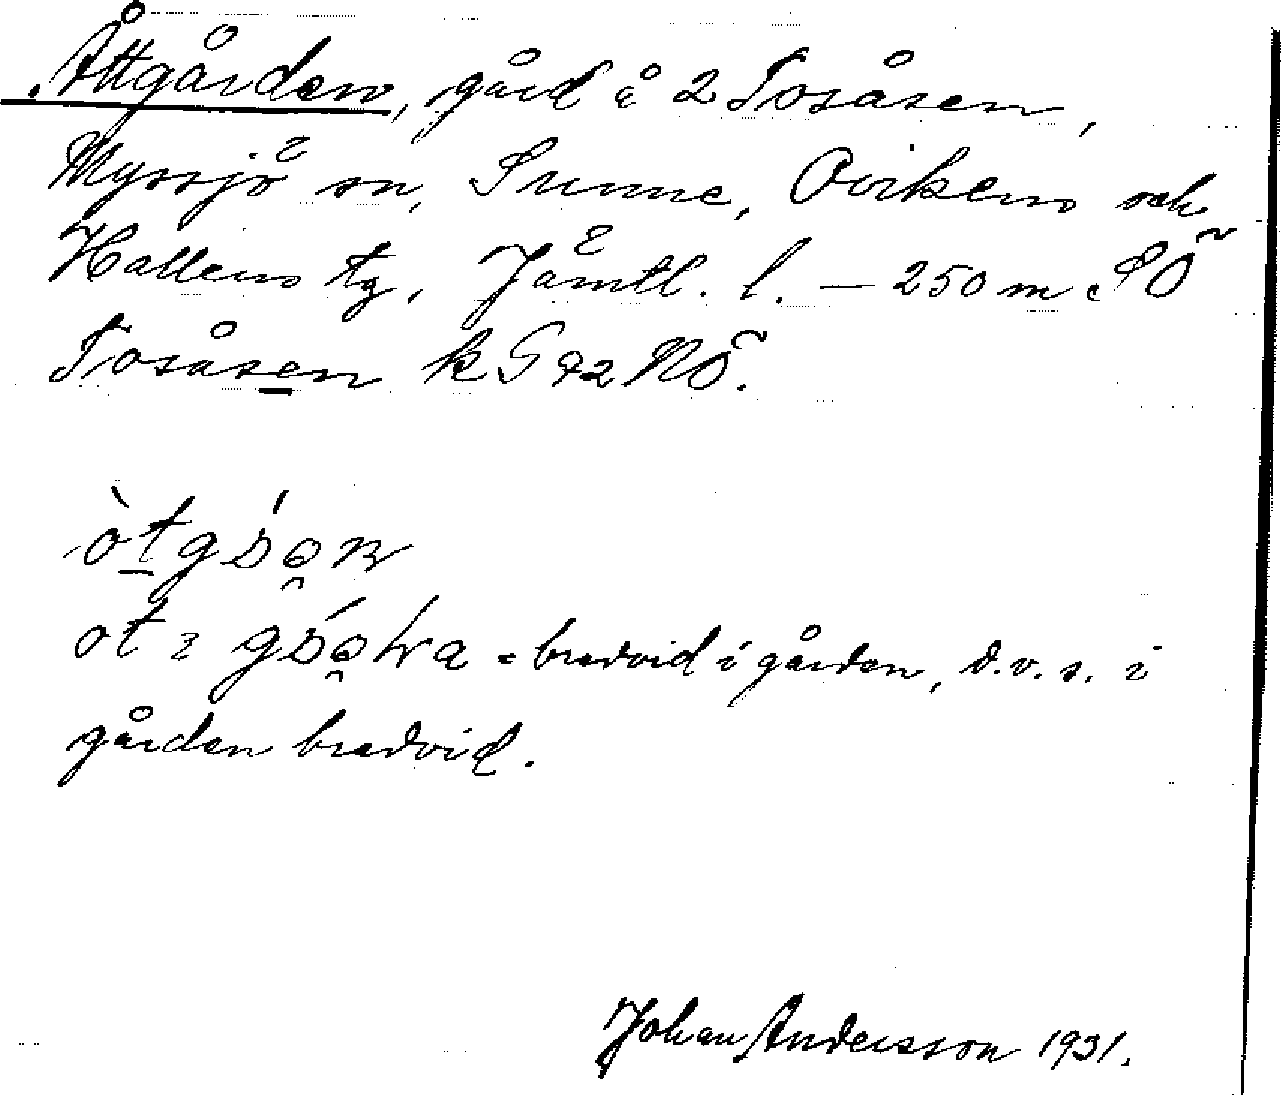 Åttgården, gård å 2 Tosåsen,
Myssjö sn, Sunne, Ovikens och
Hallens tg, Jämtl. l. — 250 m SÖ
Tosåsen k G 72 NÖ.
= bredvid i gården, d.v.s. i
gården bredvid.
Johan Andersson 1931.